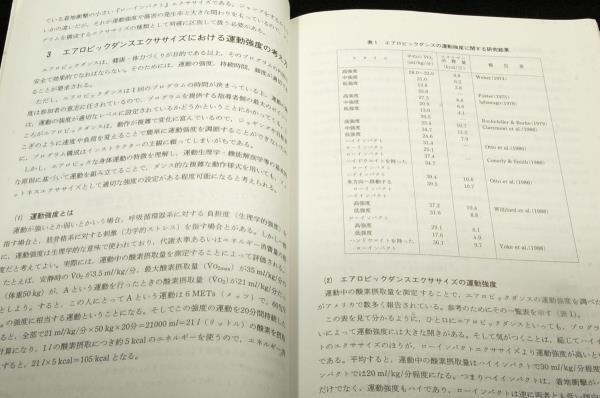 ている着地衝撃の小さい『ローインパクト』エクササイズがある。ジャンプをするか
いかの違いだが、それが運動強度や傷害の発生率と大きな関わりをもっているので、
グラムを構成するエクササイズの種類として明確に区別して扱う必要がある。
3 エアロビックダンスエクササイズにおける運動強度の考え方
エアロビックダンスは、健康・体力づくりが目的である以上、そのプログラムの
安全で効果的でなければならない。そのためには、運動の強度、持続時間、頻度が
ることが要求される。
ただし、エアロビックダンスは1回のプログラムの時間が決まっている上、
度は参加者の意志に任されているので、プログラムを提供する指導者側の最大の
は、運動の強度が適切なレベルに設定されているかどうかということにかかってく
ころがエアロビックダンスは、動作が複雑で変化に富んでいるので、ジョギングや
こぎのように速度や負荷を変えることで簡単に運動強度を調節することができない
に、プログラム構成はインストラクターの主観に頼ってしまいがちである。
しかし、エアロビックな身体運動の特徴を理解し、運動生理学・機能解剖学等の基
な原則に基づいて運動を組み立てることで、ダンス的な複雑な動作様式を用いても、フィ
ットネスエクササイズとして適切な強度の設定がある程度可能になると考えられる。
(1) 運動強度とは
運動が強いとか弱いとかいう場合、呼吸循環器系に対する負担度（生理学的強度）を
指す場合と、筋骨格系に対する刺激（力学的ストレス）を指す場合とがある。しかし一般
に、運動強度は生理学的な意味で使われており、代謝水準あるいはエネルギー消費量の
度だと考えてよい。実際には、運動中の酸素摂取量を測定することによって評価される。
たとえば、安静時のV̇o₂が3.5 ml/kg/分、最大酸素摂取量（V̇o₂max）が35 ml/kg/分
（体重50kg）が、Aという運動を行ったときの酸素摂取量（V̇o₂）が21 ml/kg/分だ
としよう。すると、この人にとってAという運動は6METs（メッツ）で、60%
の強度に相当する運動ということになる。そしてこの強度の運動を20分間持続した
ると、全部で21 ml/kg/分×50 kg×20分=21000 ml=21 l（リットル）の酸素を摂取
計算になり、1 lの酸素摂取につき約5 kcalのエネルギーを使うので、エネルギー消
すると、21 l×5 kcal=105 kcalとなる。
表1 エアロビックダンスの運動強度に関する研究結果
スタイル 平均の V̇O₂ (ml/kg/分) エネルギー消費量 (kcal/分) 報告者
高強度 28.0～32.0
中強度 21.0 Weber(1974)
低強度 13.8
高強度 27.5 Foster(1975)
中強度 20.9 Igbanugo(1978)
低強度 13.6
高強度 33.4 10.7 Rockefeller & Burke(1979)
中強度 24.7 11.2 Claremont et al.(1986)
低強度 24.6 7.9
ハイインパクト 31.4 Otto et al.(1986)
ローインパクト 25.1
ハイインパクト 37.4
ハイドウエイトを持った 34.7 Conerly & Smith(1986)
ローインパクト
多方向へ移動する 39.4 10.6 Otto et al.(1988)
ローインパクト 39.5 10.7
ハイインパクト
高強度 37.2 10.4
低強度 31.6 8.8 Williford et al.(1988)
ローインパクト
高強度 29.1 8.1
低強度 17.6 4.9
ハンドウエイトを持った 36.1 9.7 Yoke et al.(1988)
ローインパクト
(2) エアロビックダンスエクササイズの運動強度
運動中の酸素摂取量を測定することで、エアロビックダンスの運動強度を調べた
がアメリカで数多く報告されている。参考のためにその一覧表を示す（表1）。
この表を見て分かるように、ひと口にエアロビックダンスといっても、プログラ
いによって運動強度には大きな開きがある。そして気がつくことは、総じてハイイ
トのエクササイズのほうが、ローインパクトエクササイズより運動強度が高いと
である。平均すると、運動中の酸素摂取量はハイインパクトで30 ml/kg/分程度
ンパクトでは20 ml/kg/分程度になる。つまりハイインパクトは、着地衝撃が
だけでなく、運動強度もハイであり、ローインパクトは逆に両者とも低い傾向